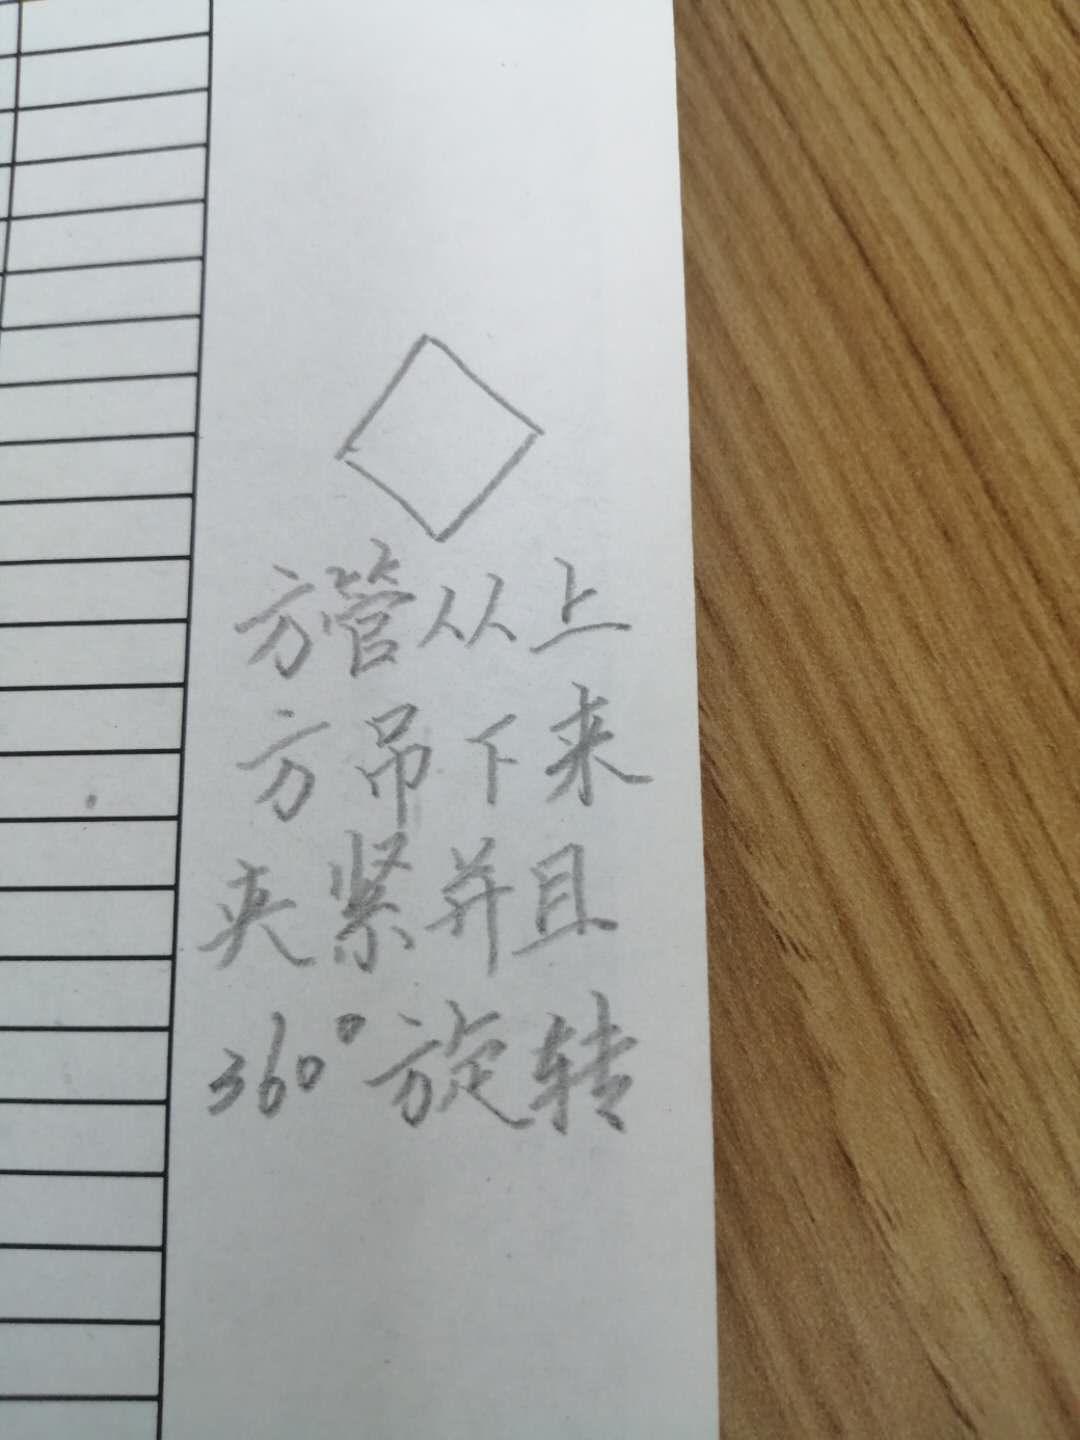 方管从上
方吊下来
夹紧并且
360°旋转